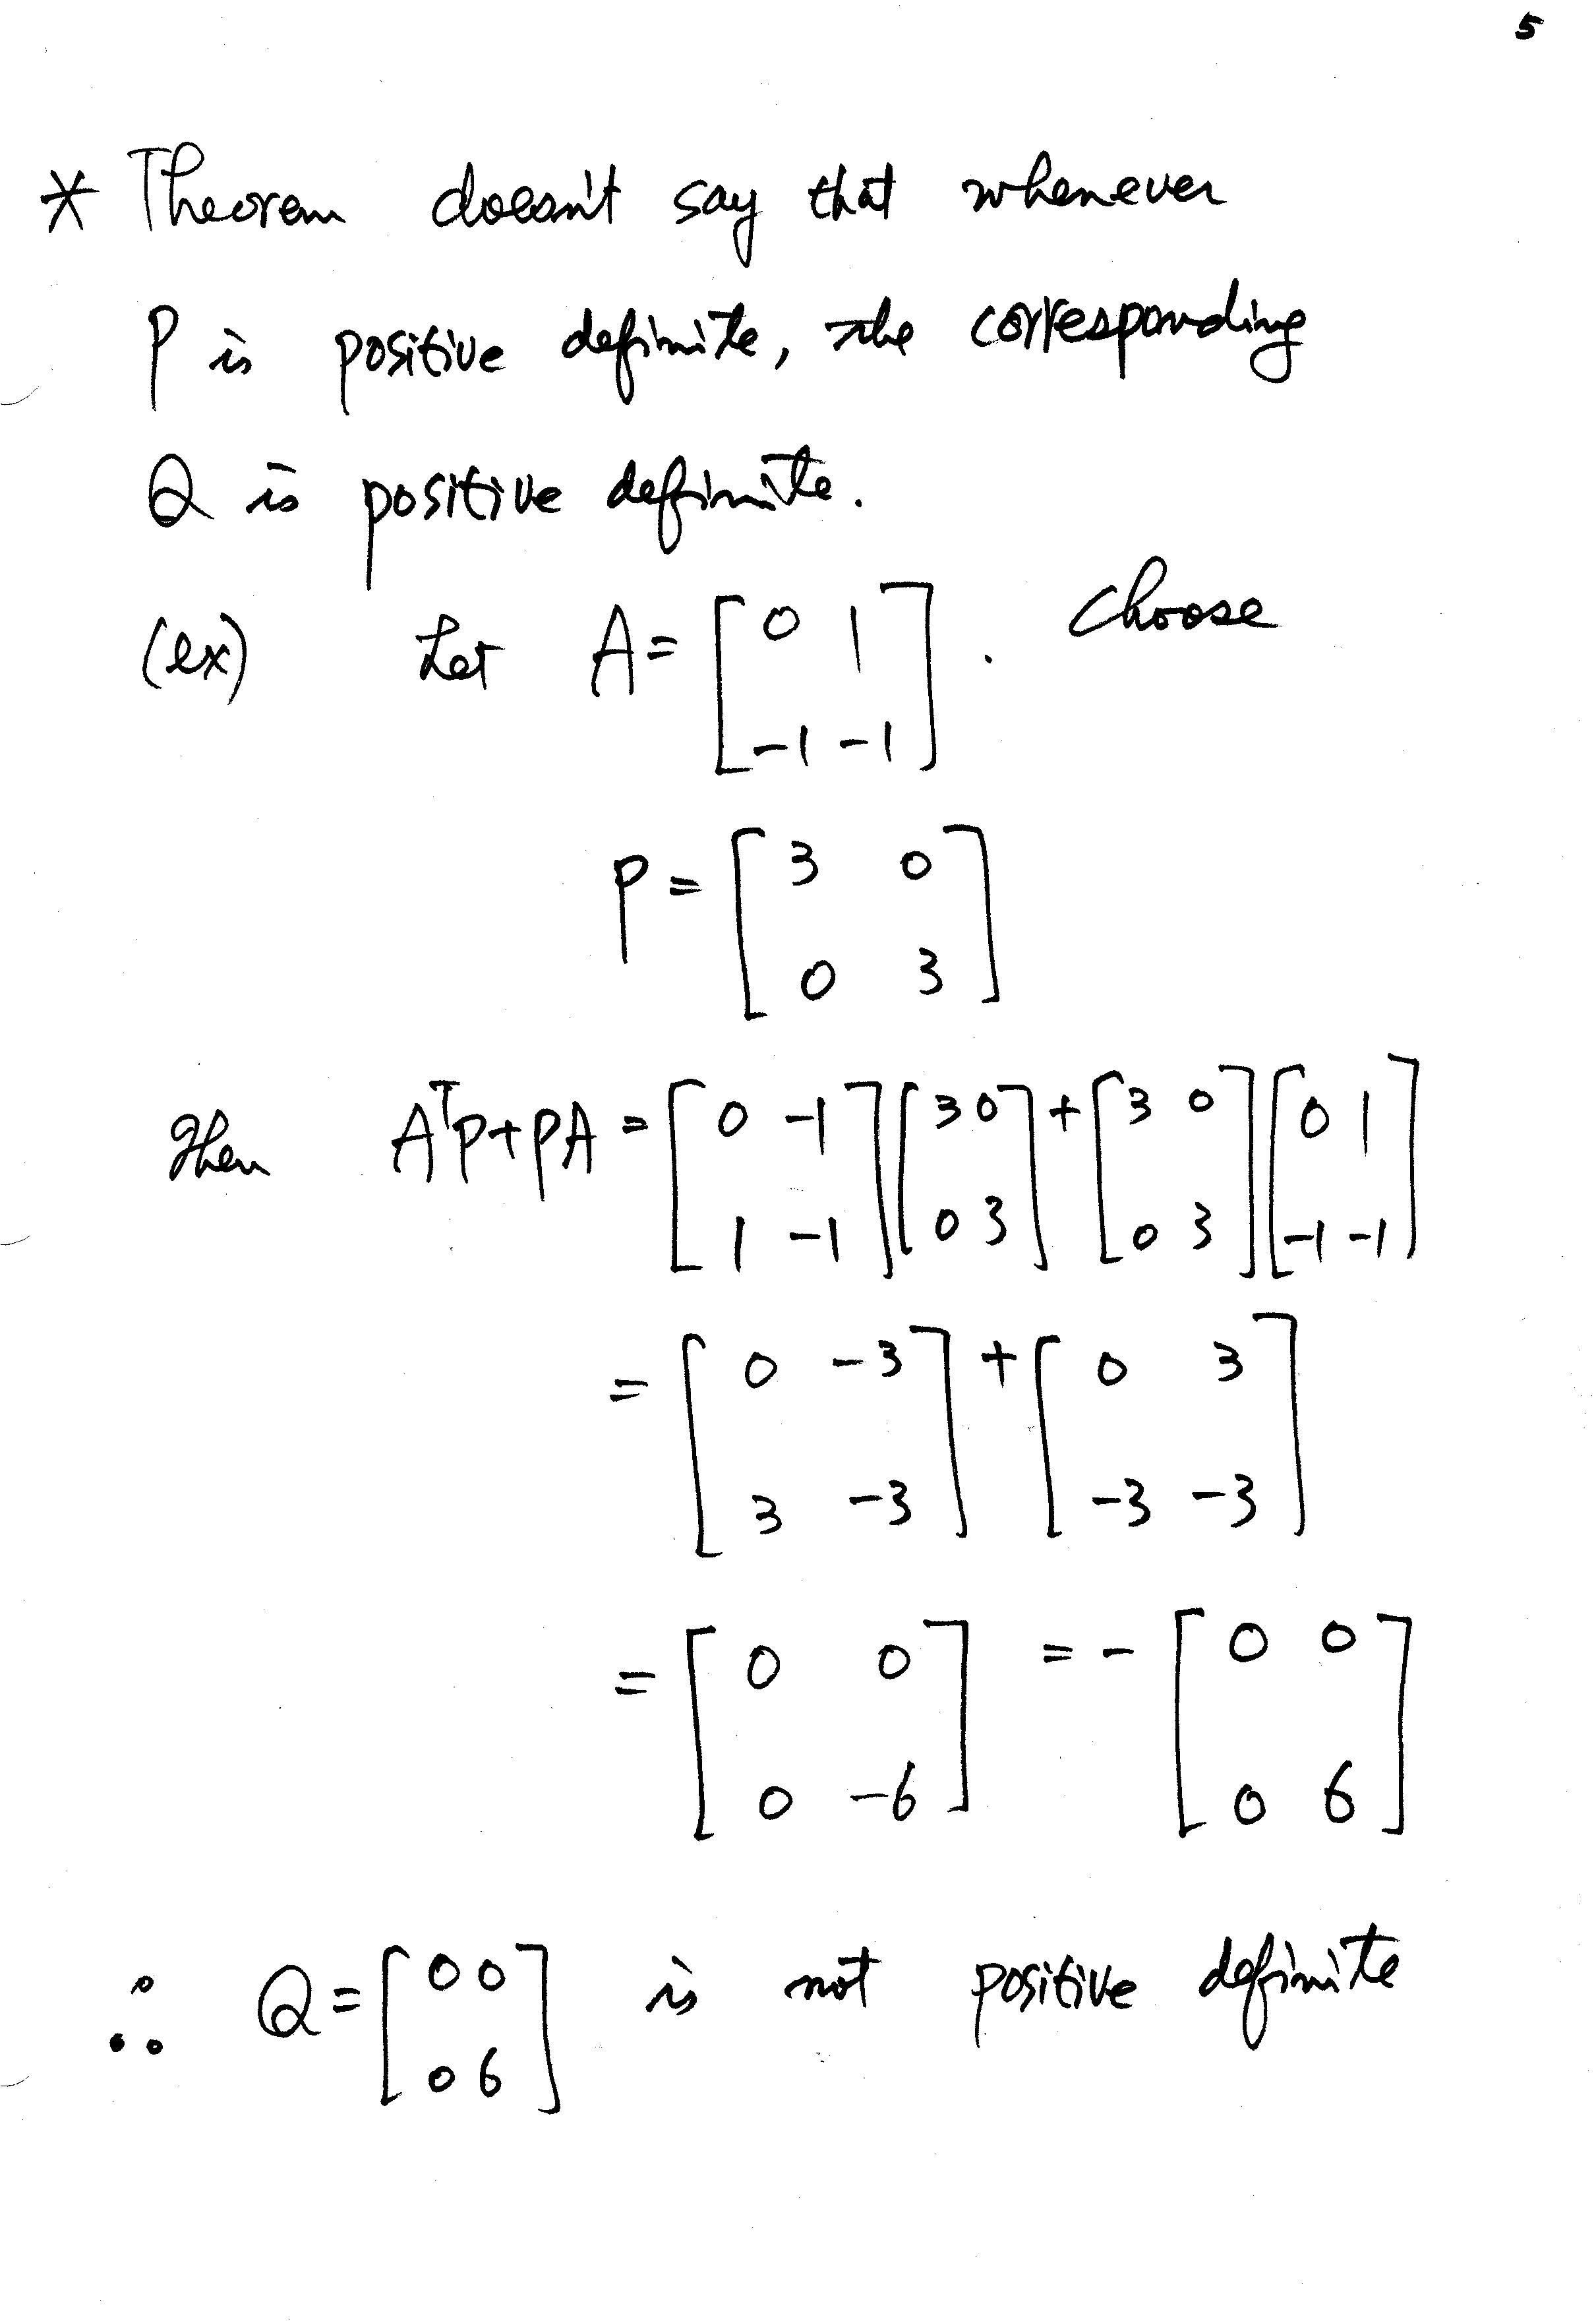 5
* Theorem doesn't say that whenever
P is positive definite, the corresponding
Q is positive definite.
(ex) Let A = [0 1; -1 -1]. Choose
P = [3 0; 0 3]
Then AᵀP + PA = [0 -1; 1 -1][3 0; 0 3] + [3 0; 0 3][0 1; -1 -1]
= [0 -3; 3 -3] + [0 3; -3 -3]
= [0 0; 0 -6] = - [0 0; 0 6]
∴ Q = [0 0; 0 6] is not positive definite